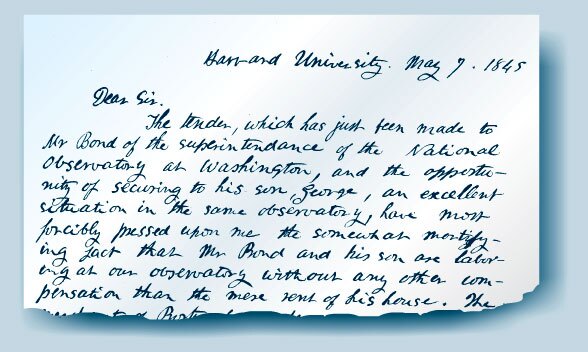 Harvard University. May 7. 1845
Dear Sir.
The tender, which has just been made to
Mr Bond of the superintendance of the National
Observatory at Washington, and the opportu-
nity of securing to his son, George, an excellent
situation in the same observatory, have most
forcibly pressed upon me the somewhat mortify-
ing fact that Mr Bond and his son are labor-
ing at our observatory without any other com-
pensation than the mere rent of his house. The